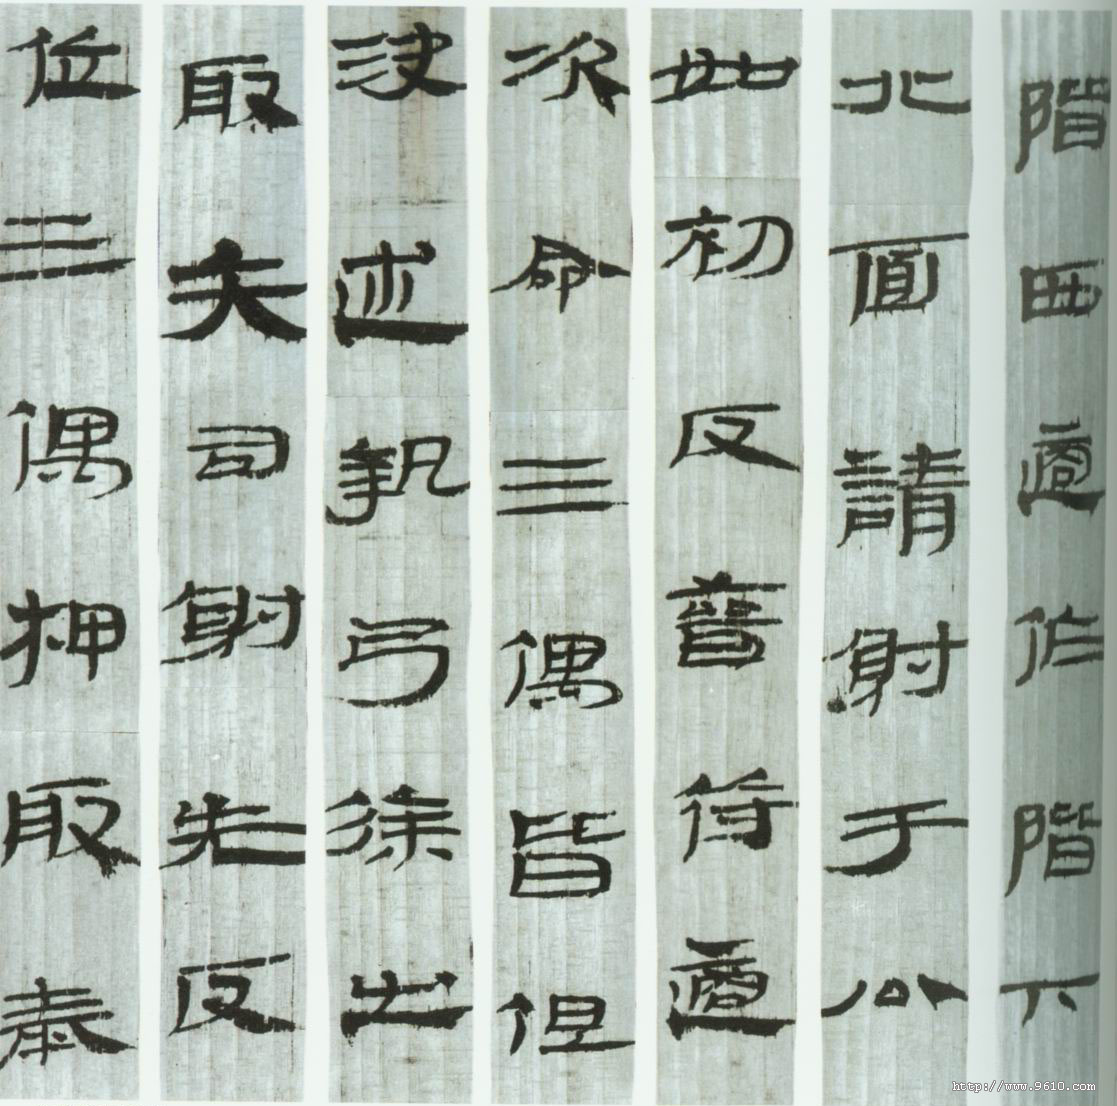 階西適作階下
北面請射于公
如初反晉符適
次命三偶皆但
決述執弓徐出
取矢司射先反
位三偶押取
http://www.9610.com